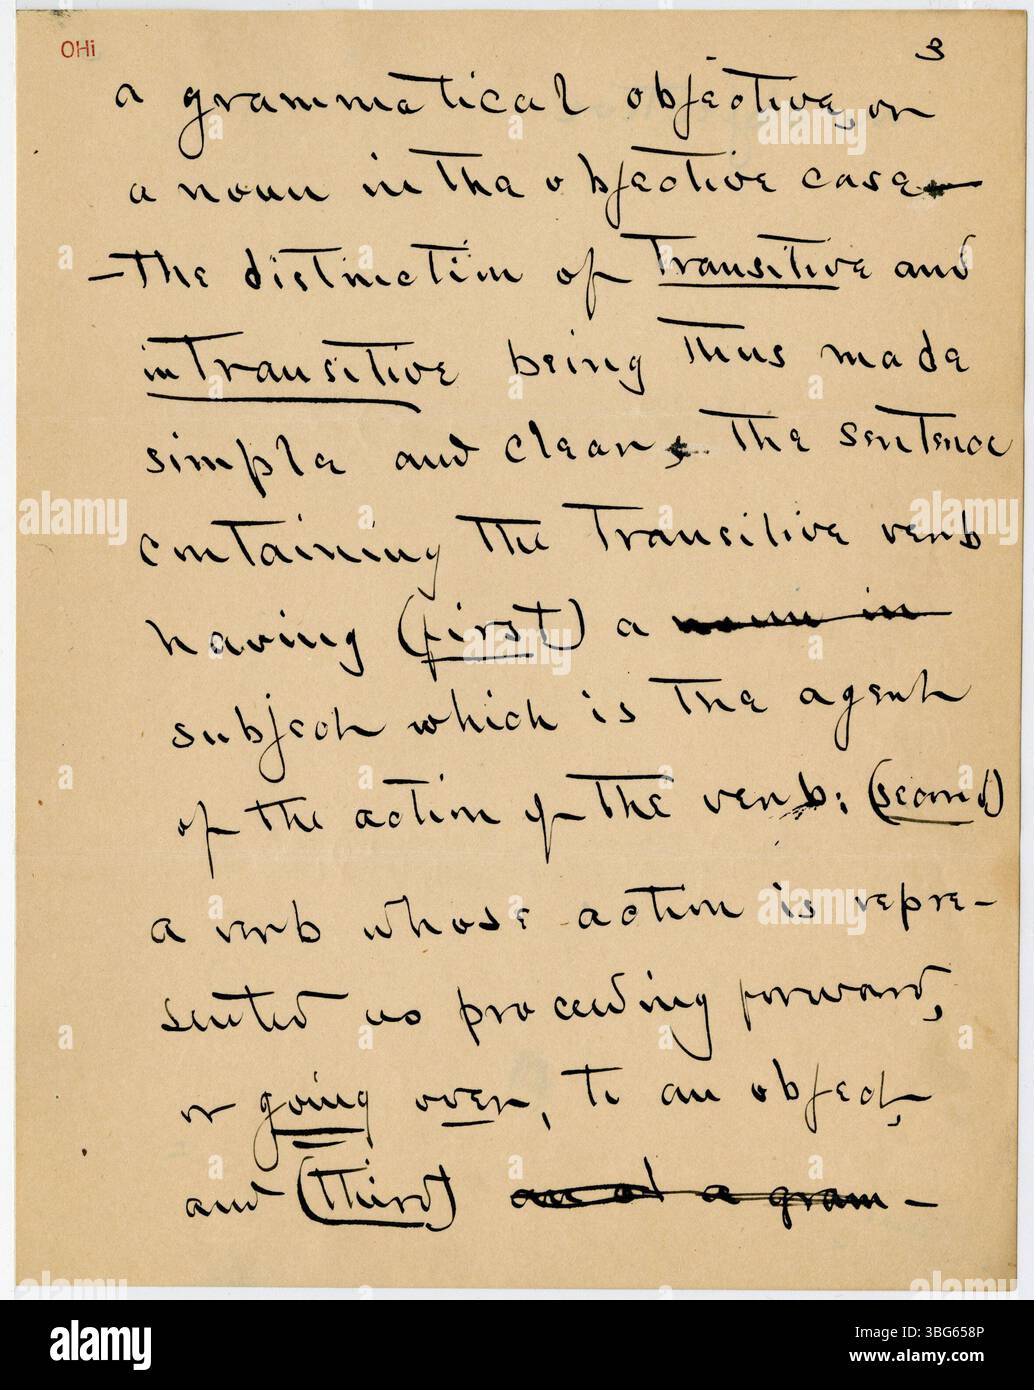 OHi
3
a grammatical objective, or
a noun in the objective case
—The distinction of transitive and
intransitive being thus made
simple and clear, the sentence
containing the transitive verb
having (first) a noun in
subject which is the agent
of the action of the verb; (second)
a verb whose action is repre-
sented as proceeding forward,
or going over, to an object,
and (third) an ob a gram-
alamy
Image ID: 3BG658P
www.alamy.com